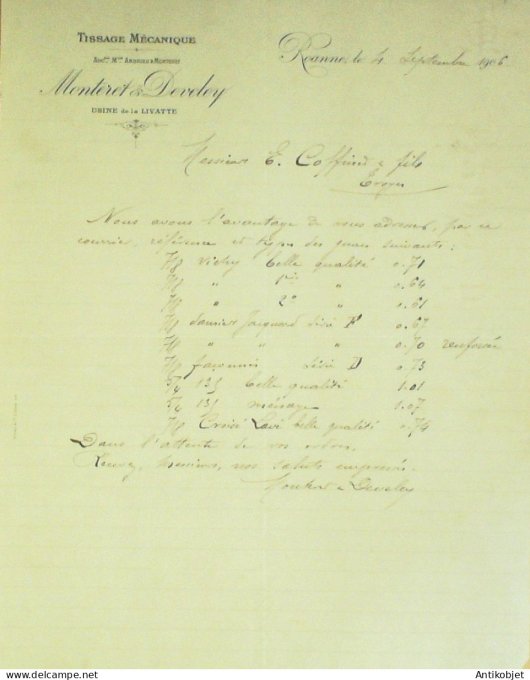 TISSAGE MÉCANIQUE
ANCne Mon ANDRIEU & MONTERET
Monteret & Develey
USINE de la LIVATTE
Roanne, le 4 Septembre 1906
Messieurs E. Coffinet & fils
Troyes
Nous avons l'avantage de vous adresser, par ce
courrier, référence et types des genres suivants :
7/8 Vichy belle qualité 0.71
7/8 " 1re " 0.64
7/8 " 2e " 0.61
7/8 Jacquard Série F 0.67
7/8 " " " 0.70 renforcée
7/8 façonnés Série D 0.73
5/4 belle qualité 1.01
5/4 ménage 1.07
7/8 Croisé belle qualité 0.74
Dans l'attente de vos ordres,
Recevez, Messieurs, nos saluts empressés.
Monteret & Develey
Antikobjet